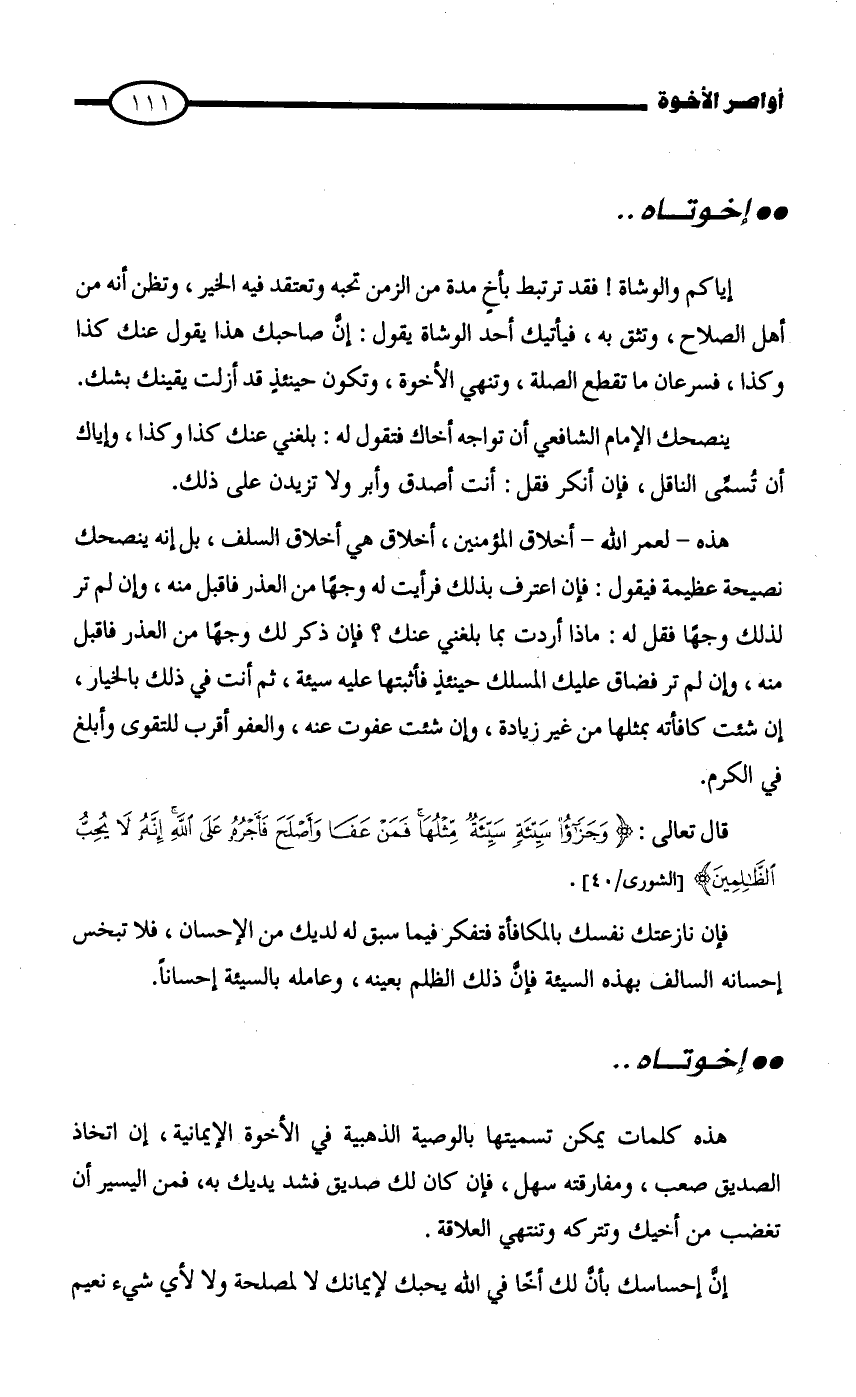 أواصر الأخوة ١١١
●● إخوتـــاه ..
إياكم والوشاة ! فقد ترتبط بأخٍ مدة من الزمن تحبه وتعتقد فيه الخير ، وتظن أنه من
أهل الصلاح ، وتثق به ، فيأتيك أحد الوشاة يقول : إنَّ صاحبك هذا يقول عنك كذا
وكذا ، فسرعان ما تقطع الصلة ، وتنهي الأخوة ، وتكون حينئذٍ قد أزلت يقينك بشك.
ينصحك الإمام الشافعي أن تواجه أخاك فتقول له : بلغني عنك كذا وكذا ، وإياك
أن تُسمِّى الناقل ، فإن أنكر فقل : أنت أصدق وأبر ولا تزيدن على ذلك.
هذه – لعمر الله – أخلاق المؤمنين ، أخلاق هي أخلاق السلف ، بل إنه ينصحك
نصيحة عظيمة فيقول : فإن اعترف بذلك فرأيت له وجهًا من العذر فاقبل منه ، وإن لم تر
لذلك وجهًا فقل له : ماذا أردت بما بلغني عنك ؟ فإن ذكر لك وجهًا من العذر فاقبل
منه ، وإن لم تر فضاق عليك المسلك حينئذٍ فأثبتها عليه سيئة ، ثم أنت في ذلك بالخيار ،
إن شئت كافأته بمثلها من غير زيادة ، وإن شئت عفوت عنه ، والعفو أقرب للتقوى وأبلغ
في الكرم.
قال تعالى : ﴿ وَجَزَٰٓؤُا۟ سَيِّئَةٍ سَيِّئَةٌ مِّثْلُهَا ۖ فَمَنْ عَفَا وَأَصْلَحَ فَأَجْرُهُۥ عَلَى ٱللَّهِ ۚ إِنَّهُۥ لَا يُحِبُّ
ٱلظَّٰلِمِينَ﴾ [الشورى/٤٠] .
فإن نازعتك نفسك بالمكافأة فتفكر فيما سبق له لديك من الإحسان ، فلا تبخس
إحسانه السالف بهذه السيئة فإنَّ ذلك الظلم بعينه ، وعامله بالسيئة إحساناً.
●● إخوتـــاه ..
هذه كلمات يمكن تسميتها بالوصية الذهبية في الأخوة الإيمانية ، إن اتخاذ
الصديق صعب ، ومفارقته سهل ، فإن كان لك صديق فشد يديك به، فمن اليسير أن
تغضب من أخيك وتتركه وتنتهي العلاقة .
إنَّ إحساسك بأنَّ لك أخًا في الله يحبك لإيمانك لا لمصلحة ولا لأي شيء نعيم